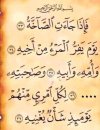 بسم الله الرحمن الرحيم
فَإِذَا جَاءَتِ الصَّاخَّةُ
يَوْمَ يَفِرُّ الْمَرْءُ مِنْ أَخِيهِ
وَأُمِّهِ وَأَبِيهِ وَصَاحِبَتِهِ
لِكُلِّ امْرِئٍ مِّنْهُمْ
يَوْمَئِذٍ شَأْنٌ يُغْنِيهِ